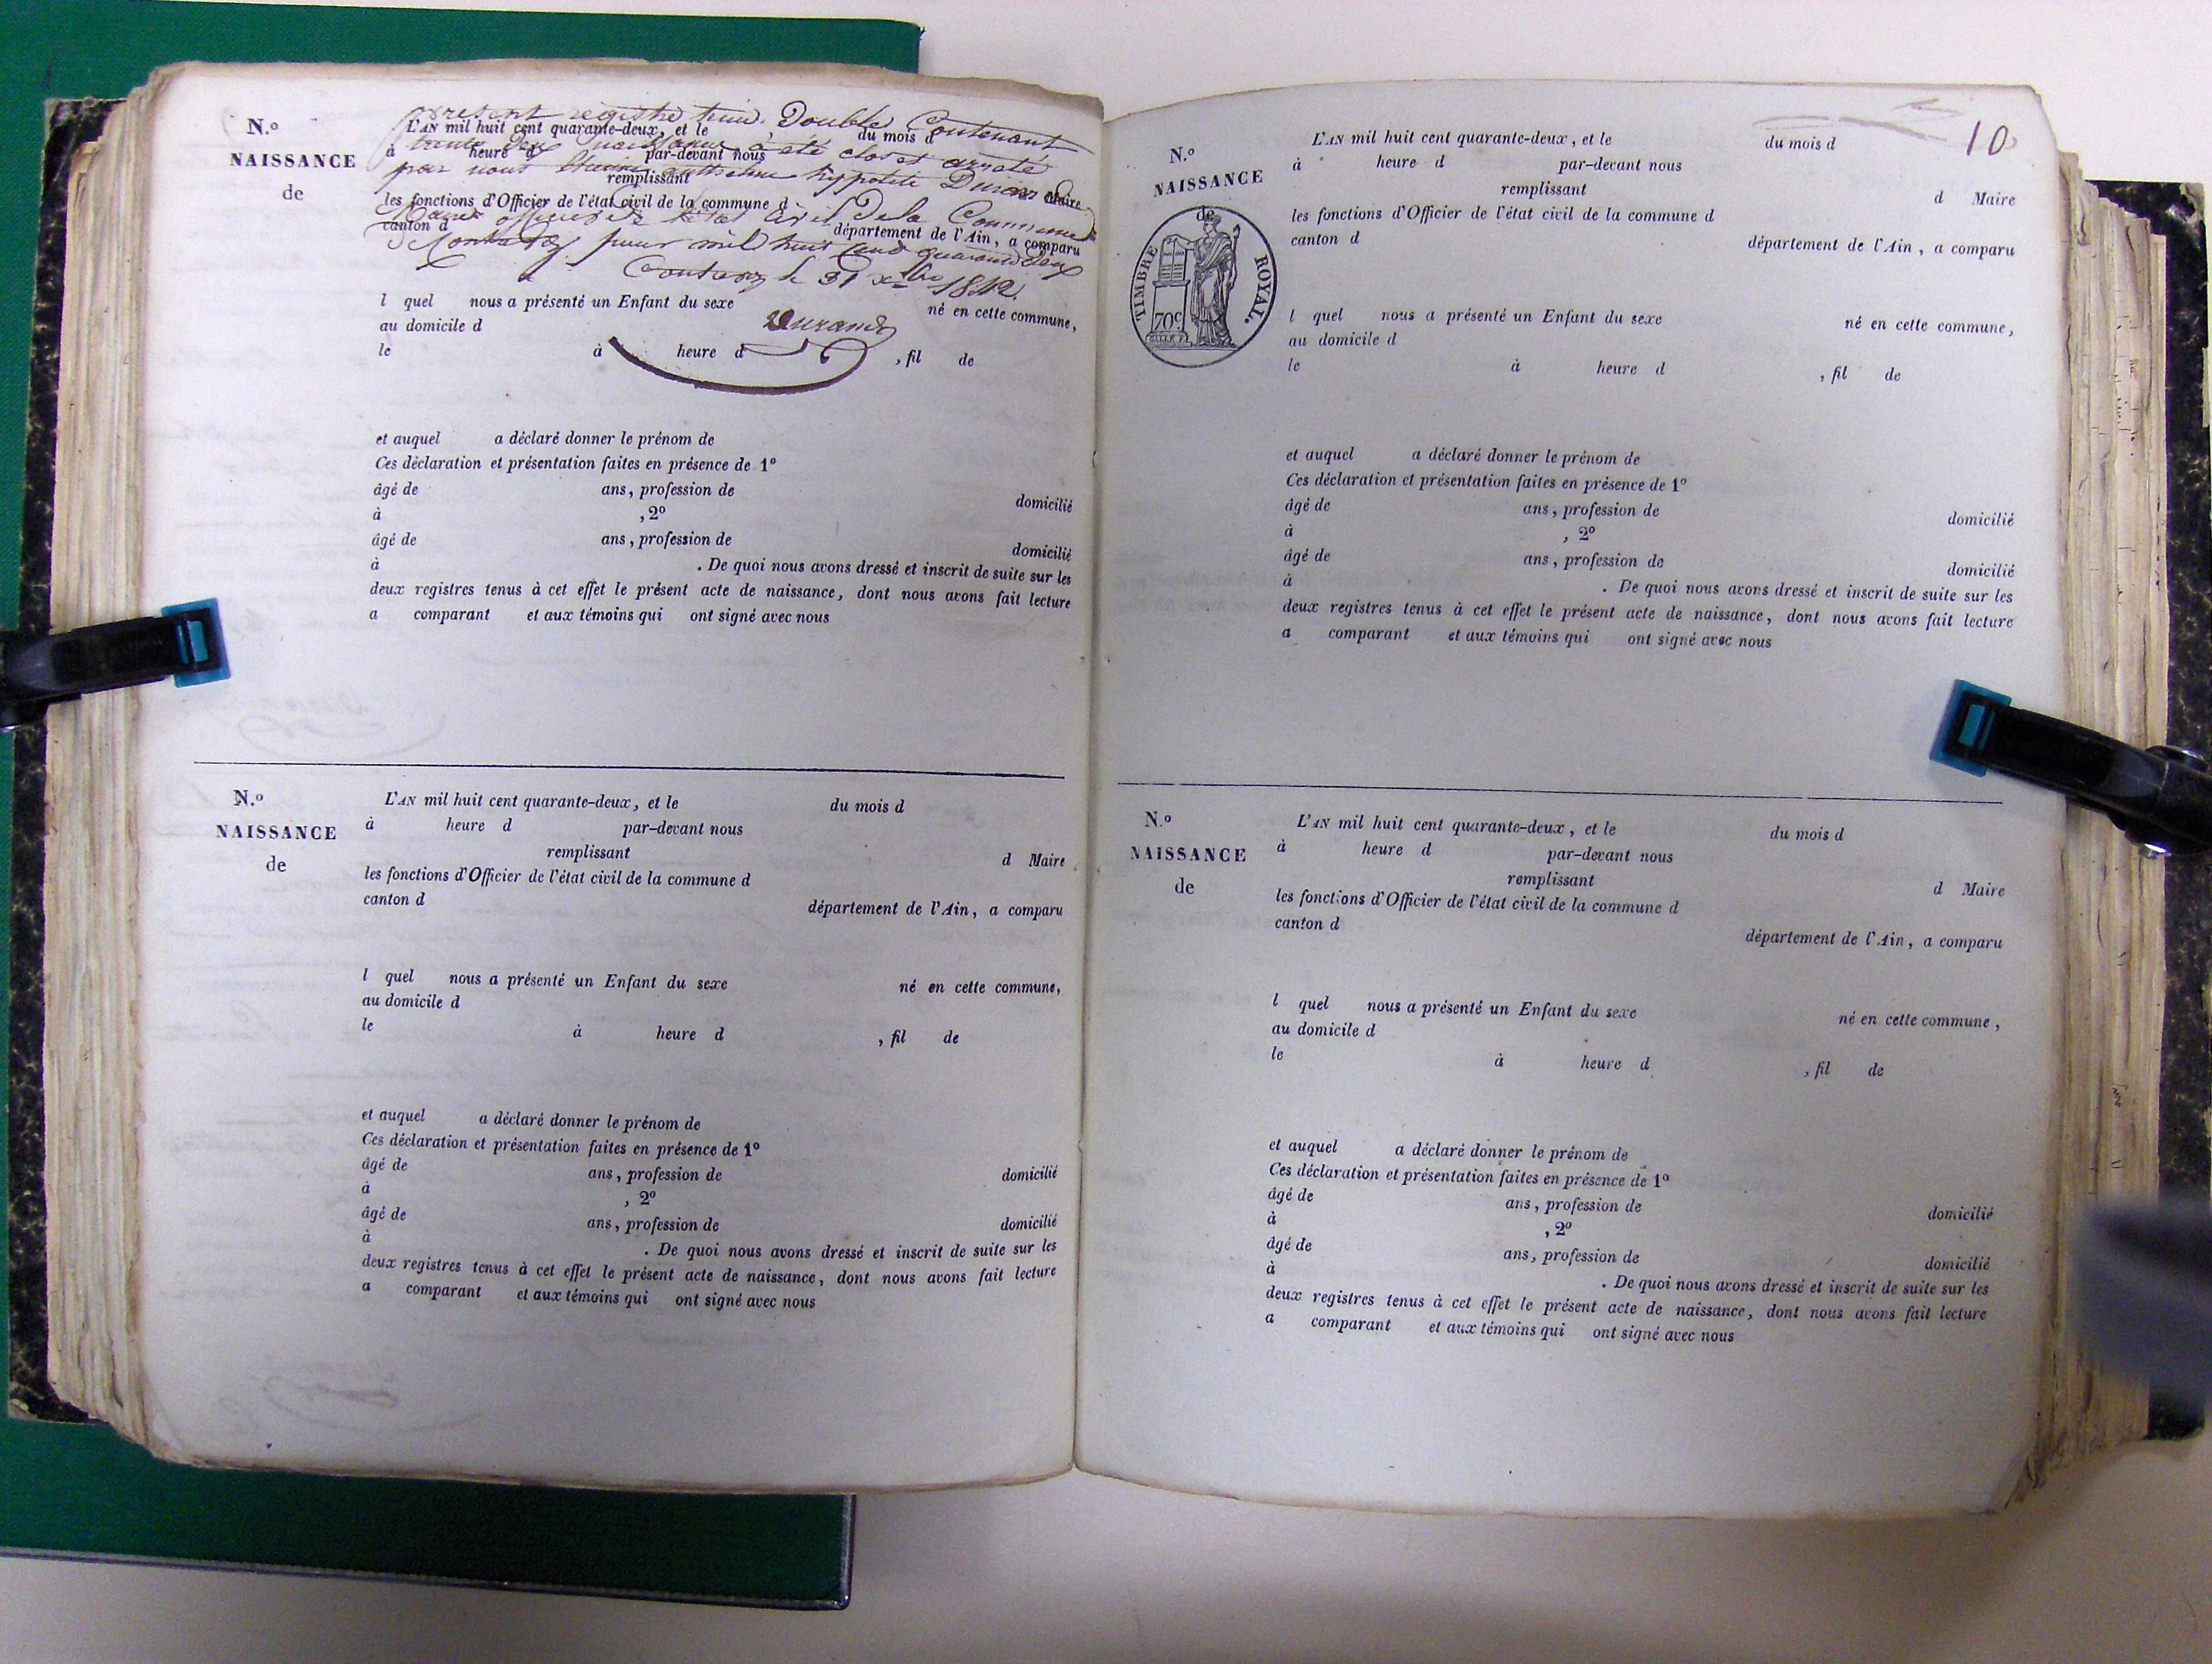 N.º
NAISSANCE
de
présent registre tenu Double Contenant
trente Deux naissances a été clos et arreté
par nous hyppolite Durand
Maire officier de l'état Civil De la Commune
De pour mil huit Cent quarante deux
le 31 xbre 1842.
Durand
L'AN mil huit cent quarante-deux, et le du mois d
à heure d par-devant nous
remplissant d Maire
les fonctions d'Officier de l'état civil de la commune d
canton d département de l'Ain, a comparu
l quel nous a présenté un Enfant du sexe né en cette commune,
au domicile d
le à heure d , fil de
et auquel a déclaré donner le prénom de
Ces déclaration et présentation faites en présence de 1º
âgé de ans, profession de domicilié
à , 2º
âgé de ans, profession de domicilié
à . De quoi nous avons dressé et inscrit de suite sur les
deux registres tenus à cet effet le présent acte de naissance, dont nous avons fait lecture
a comparant et aux témoins qui ont signé avec nous
N.º
NAISSANCE
de
L'AN mil huit cent quarante-deux, et le du mois d
à heure d par-devant nous
remplissant d Maire
les fonctions d'Officier de l'état civil de la commune d
canton d département de l'Ain, a comparu
l quel nous a présenté un Enfant du sexe né en cette commune,
au domicile d
le à heure d , fil de
et auquel a déclaré donner le prénom de
Ces déclaration et présentation faites en présence de 1º
âgé de ans, profession de domicilié
à , 2º
âgé de ans, profession de domicilié
à . De quoi nous avons dressé et inscrit de suite sur les
deux registres tenus à cet effet le présent acte de naissance, dont nous avons fait lecture
a comparant et aux témoins qui ont signé avec nous
10
N.º
NAISSANCE
de
TIMBRE ROYAL.
70c
L'AN mil huit cent quarante-deux, et le du mois d
à heure d par-devant nous
remplissant d Maire
les fonctions d'Officier de l'état civil de la commune d
canton d département de l'Ain, a comparu
l quel nous a présenté un Enfant du sexe né en cette commune,
au domicile d
le à heure d , fil de
et auquel a déclaré donner le prénom de
Ces déclaration et présentation faites en présence de 1º
âgé de ans, profession de domicilié
à , 2º
âgé de ans, profession de domicilié
à . De quoi nous avons dressé et inscrit de suite sur les
deux registres tenus à cet effet le présent acte de naissance, dont nous avons fait lecture
a comparant et aux témoins qui ont signé avec nous
N.º
NAISSANCE
de
L'AN mil huit cent quarante-deux, et le du mois d
à heure d par-devant nous
remplissant d Maire
les fonctions d'Officier de l'état civil de la commune d
canton d département de l'Ain, a comparu
l quel nous a présenté un Enfant du sexe né en cette commune,
au domicile d
le à heure d , fil de
et auquel a déclaré donner le prénom de
Ces déclaration et présentation faites en présence de 1º
âgé de ans, profession de domicilié
à , 2º
âgé de ans, profession de domicilié
à . De quoi nous avons dressé et inscrit de suite sur les
deux registres tenus à cet effet le présent acte de naissance, dont nous avons fait lecture
a comparant et aux témoins qui ont signé avec nous